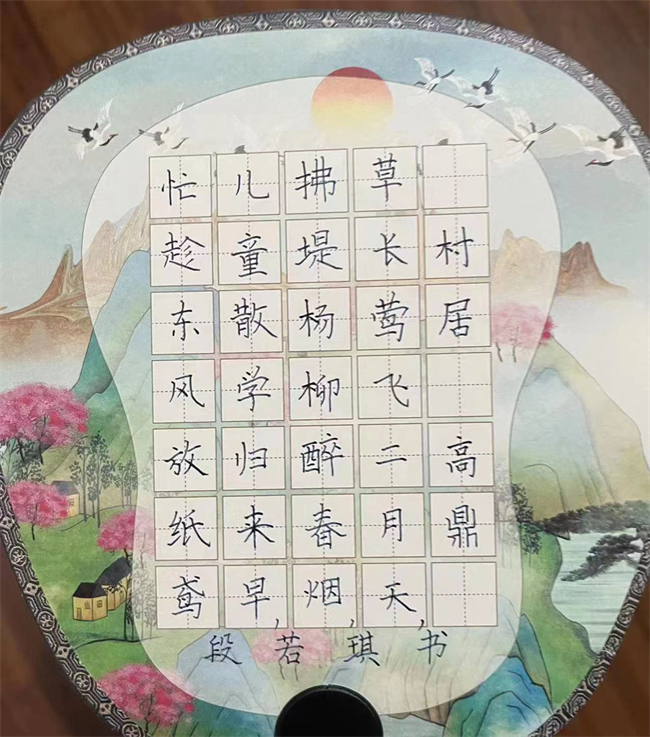 村居 高鼎
草长莺飞二月天，
拂堤杨柳醉春烟，
儿童散学归来早，
忙趁东风放纸鸢
段若琪书